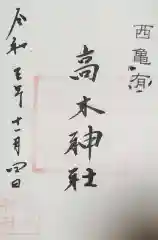 西亀有
高木神社
令和五年十一月四日